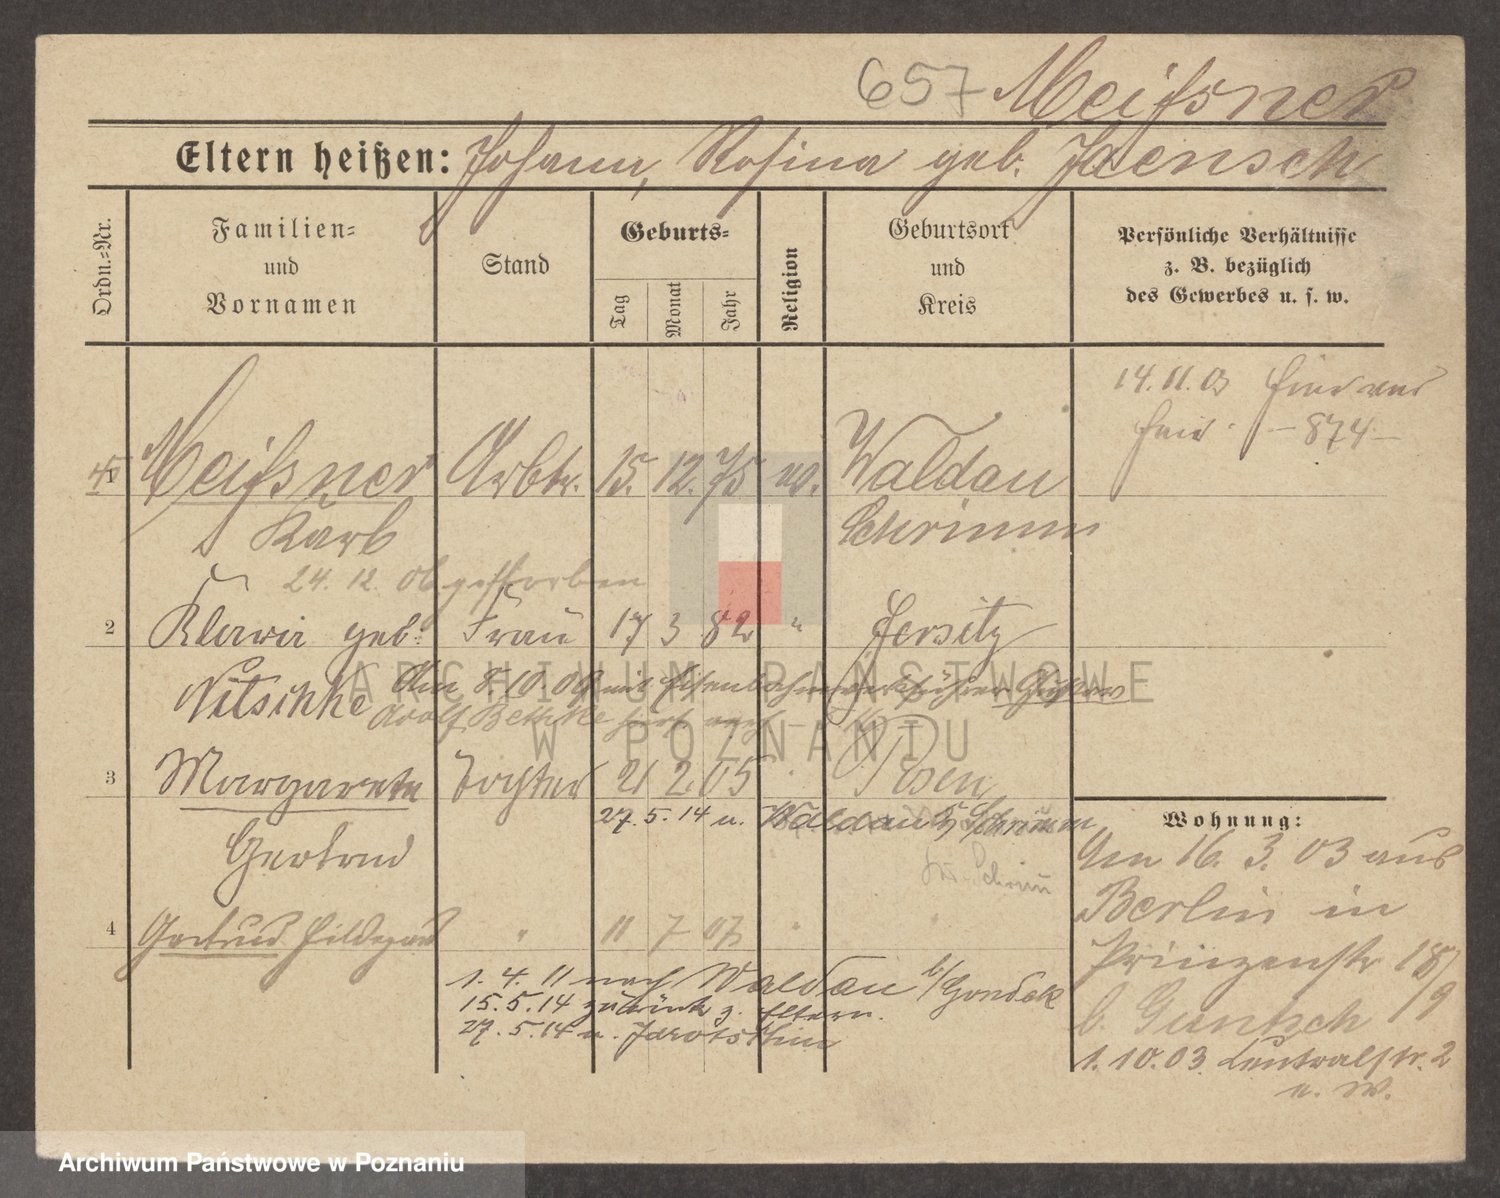 657 Meißner
Eltern heißen: Johann, Rosina geb. Jaensch
Ordn.=Nr.
Familien=
und
Vornamen
Stand
Geburts=
Tag
Monat
Jahr
Religion
Geburtsort
und
Kreis
Persönliche Verhältnisse
z. B. bezüglich
des Gewerbes u. s. w.
14. 11. 03
- 874 -
1 Meißner Arbtr. 15. 12. 75 ev. Waldau
Karl Schrimm
24. 12. 06 gestorben
2 Klara geb. Frau 17 3 82 " Jersitz
Nitschke Am 8. 10. 09 mit Eisenbahn
Adolf Bethke
3 Margarete Tochter 21 2. 05 Posen
Gertrud
27. 5. 14 n. Waldau Schrimm
4 Gertrud Hildegard " 11 7 07 " "
1. 4. 11 nach Waldau b/ Gondek
15. 5. 14 zurück z. Eltern.
27. 5. 14 n. Jarotschin
Wohnung:
Am 16. 3. 03 aus
Berlin in
Prinzenstr 18/9
b. Guntsch
1. 10. 03 Centralstr. 2
n. W.
ARCHIWUM PAŃSTWOWE
W POZNANIU
Archiwum Państwowe w Poznaniu